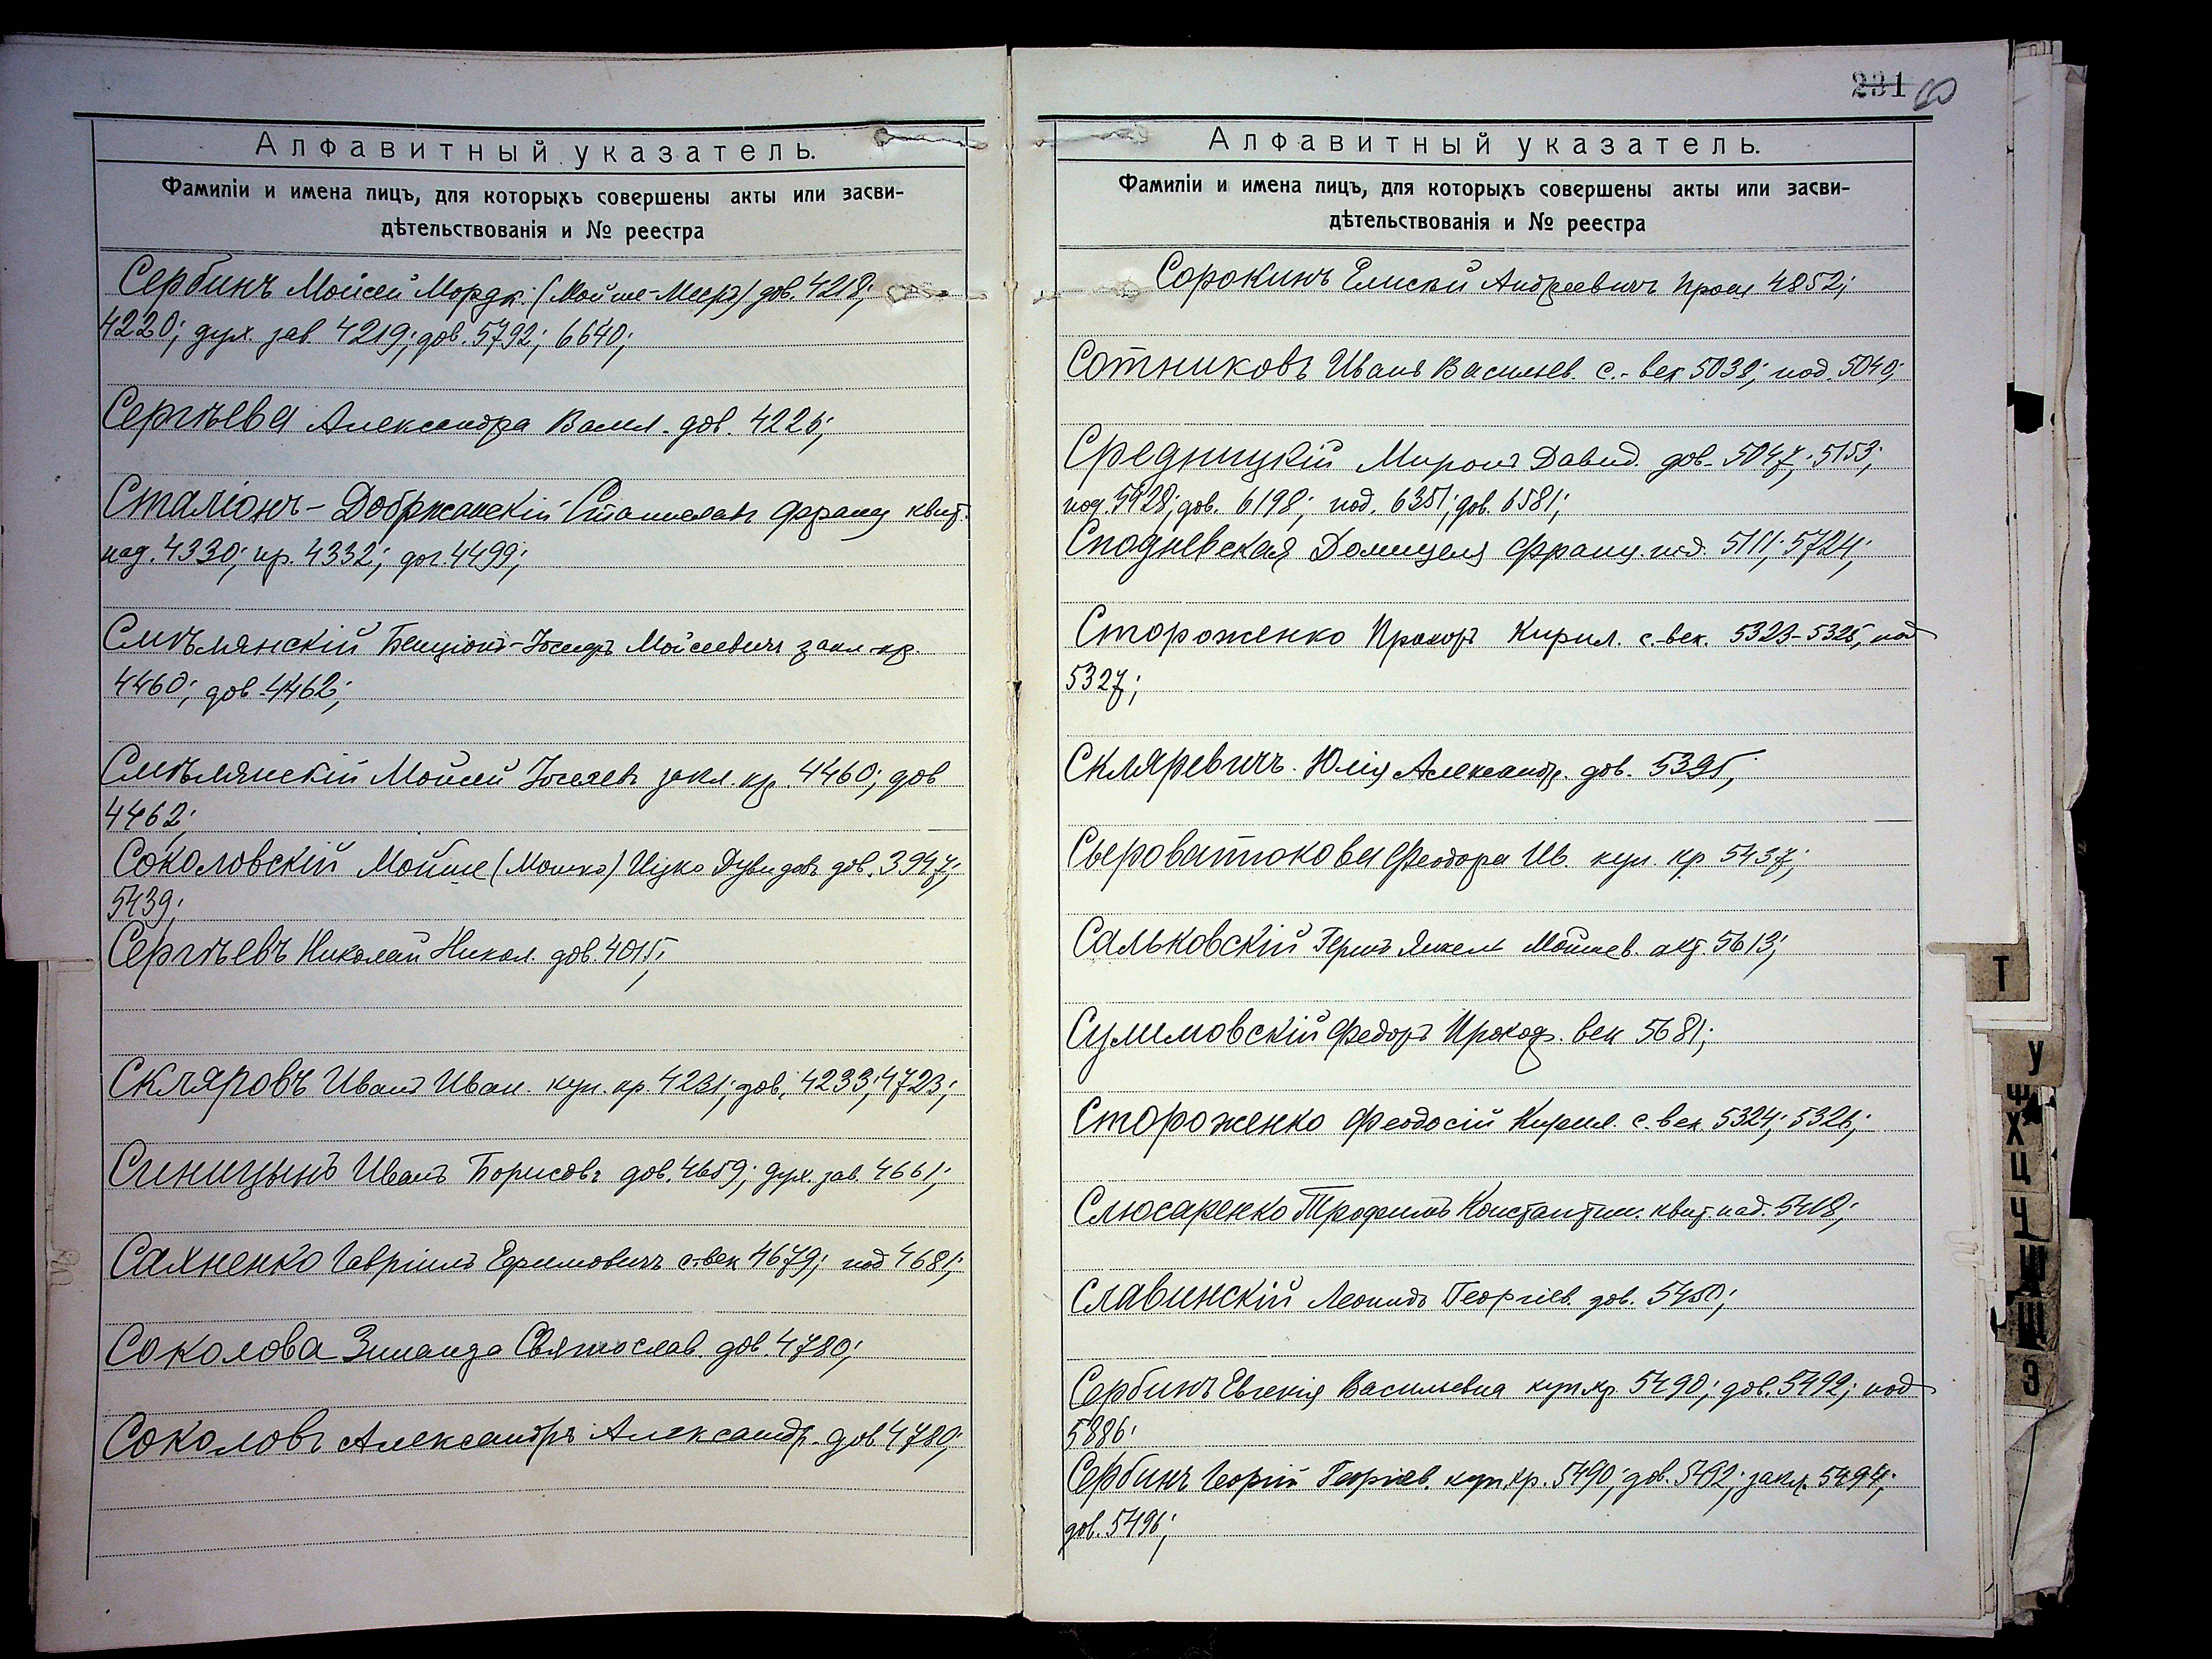 Алфавитный указатель.
Фамиліи и имена лицъ, для которыхъ совершены акты или засви-
дѣтельствованія и № реестра
Сербинъ Моисей Мордк. (Мойше-Меєръ) дов. 4218;
4220; дух. зав. 4219; дов. 5792; 6640;
Сергѣева Александра Васил. дов. 4226;
Сталіонъ-Добржанскій Станиславъ Франц квит.
над. 4330; кр. 4332; дог. 4499;
Смѣлянскій Бенціонъ-Іосифъ Мойсеевичъ закл. кр.
4460; дов 4462;
Смѣлянскій Мойсей Іосиевъ закл. кр. 4460; дов
4462;
Соколовскій Мойше (Мошко) Ицко Дувидовъ дов. 3947;
5439;
Сергѣевъ Николай Никол. дов. 4015;
Скляровъ Иванъ Иван. куп. кр. 4231; дов. 4233; 4723;
Синицынъ Иванъ Борисовъ дов. 4659; дух. зав. 4661;
Сахненко Гавріилъ Ефимовичъ с-век 4679; под 4681;
Соколова Зинаида Святослав. дов. 4780;
Соколовъ Александръ Александр. дов 4780;
231 60
Алфавитный указатель.
Фамиліи и имена лицъ, для которыхъ совершены акты или засви-
дѣтельствованія и № реестра
Сорокинъ Елисей Андреевичъ 4852;
Сотниковъ Иванъ Васильев. с.-век 5038; под. 5040;
Средницкій Миронъ Давид. дов. 5047; 5153;
под. 5928; дов. 6198; под. 6351; дов. 6581;
Сподневская Домицеля Франц. под. 5111; 5724;
Стороженко Прохоръ Кирил. с.-век. 5323-5325, под
5327;
Скляревичъ Юлія Александр. дов. 5395;
Сыроватюкова Феодора Ив. куп. кр 5437;
Сальковскій Герш Янкель Мойшев. акт. 5613;
Сулимовскій Федоръ Прохор. век 5681;
Стороженко Феодосій Кирил. с.век. 5324; 5326;
Слюсаренко Трофимъ Константин. квит. над. 5418;
Славинскій Леонидъ Георгіев. дов. 5450;
Сербинъ Евгенія Васильевна куп. кр. 5490; дов. 5492; под
5886.
Сербинъ Георгій Георгіев. куп. кр. 5490; дов. 5492; закл. 5494;
дов. 5496;
Т
У
Ф
Х
Ц
Ч
Ш
Щ
Э